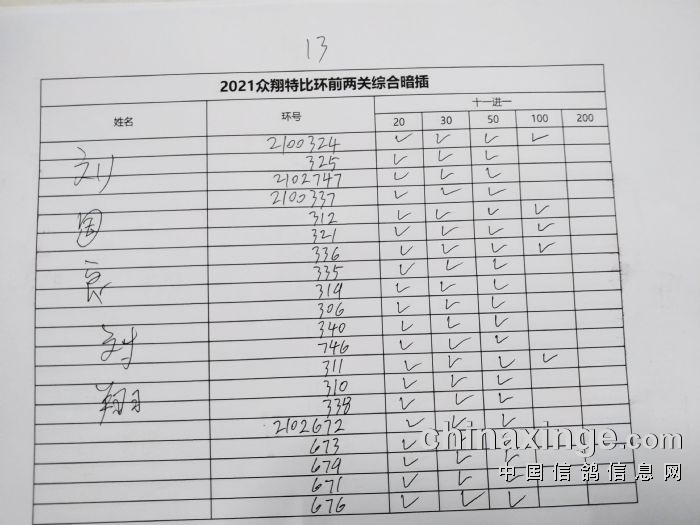 13
2021众翔特比环前两关综合暗插
姓名 环号 十一进一
20 30 50 100 200
2100324 ✓ ✓ ✓ ✓
刘 325 ✓ ✓ ✓
2102747 ✓ ✓ ✓
2100337 ✓ ✓ ✓
国 312 ✓ ✓ ✓ ✓
321 ✓ ✓ ✓ ✓
336 ✓ ✓ ✓ ✓
京 335 ✓ ✓ ✓
319 ✓ ✓ ✓
306 ✓ ✓ ✓
340 ✓ ✓ ✓
746 ✓ ✓ ✓
311 ✓ ✓ ✓ ✓
310 ✓ ✓ ✓
翔 338 ✓ ✓ ✓
2102672 ✓ ✓ ✓
673 ✓ ✓ ✓
679 ✓ ✓ ✓
671 ✓ ✓ ✓
676 ✓ ✓ ✓
chinaxinge.com
中国信鸽信息网